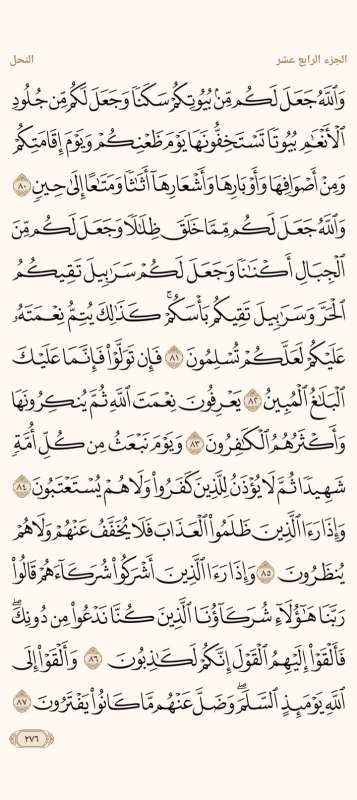 الجزء الرابع عشر
النحل
وَٱللَّهُ جَعَلَ لَكُم مِّنۢ بُيُوتِكُمْ سَكَنًا وَجَعَلَ لَكُم مِّن جُلُودِ
ٱلْأَنْعَٰمِ بُيُوتًا تَسْتَخِفُّونَهَا يَوْمَ ظَعْنِكُمْ وَيَوْمَ إِقَامَتِكُمْ
وَمِنْ أَصْوَافِهَا وَأَوْبَارِهَا وَأَشْعَارِهَآ أَثَٰثًا وَمَتَٰعًا إِلَىٰ حِينٍ ٨٠
وَٱللَّهُ جَعَلَ لَكُم مِّمَّا خَلَقَ ظِلَٰلًا وَجَعَلَ لَكُم مِّنَ
ٱلْجِبَالِ أَكْنَٰنًا وَجَعَلَ لَكُمْ سَرَٰبِيلَ تَقِيكُمُ
ٱلْحَرَّ وَسَرَٰبِيلَ تَقِيكُم بَأْسَكُمْ ۚ كَذَٰلِكَ يُتِمُّ نِعْمَتَهُۥ
عَلَيْكُمْ لَعَلَّكُمْ تُسْلِمُونَ ٨١ فَإِن تَوَلَّوْا۟ فَإِنَّمَا عَلَيْكَ
ٱلْبَلَٰغُ ٱلْمُبِينُ ٨٢ يَعْرِفُونَ نِعْمَتَ ٱللَّهِ ثُمَّ يُنكِرُونَهَا
وَأَكْثَرُهُمُ ٱلْكَٰفِرُونَ ٨٣ وَيَوْمَ نَبْعَثُ مِن كُلِّ أُمَّةٍ
شَهِيدًا ثُمَّ لَا يُؤْذَنُ لِلَّذِينَ كَفَرُوا۟ وَلَا هُمْ يُسْتَعْتَبُونَ ٨٤
وَإِذَا رَءَا ٱلَّذِينَ ظَلَمُوا۟ ٱلْعَذَابَ فَلَا يُخَفَّفُ عَنْهُمْ وَلَا هُمْ
يُنظَرُونَ ٨٥ وَإِذَا رَءَا ٱلَّذِينَ أَشْرَكُوا۟ شُرَكَآءَهُمْ قَالُوا۟
رَبَّنَا هَٰٓؤُلَآءِ شُرَكَآؤُنَا ٱلَّذِينَ كُنَّا نَدْعُوا۟ مِن دُونِكَ ۖ
فَأَلْقَوْا۟ إِلَيْهِمُ ٱلْقَوْلَ إِنَّكُمْ لَكَٰذِبُونَ ٨٦ وَأَلْقَوْا۟ إِلَى
ٱللَّهِ يَوْمَئِذٍ ٱلسَّلَمَ ۖ وَضَلَّ عَنْهُم مَّا كَانُوا۟ يَفْتَرُونَ ٨٧
٢٧٦